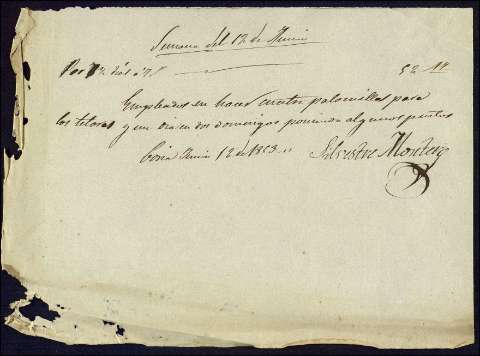 Semana del 12 de Junio
Por 12 dias á 52
Empleados en hacer cuatro palomillas para
los telares y un dia en dos domingos poniendo algunos puntos
Coria Junio 12 de 1853
Silvestre Montero